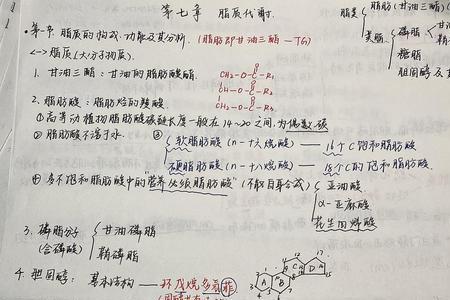 第七章 脂质代谢.
脂类 { 脂肪 (甘油三酯) (
类脂 { 磷脂 { 甘
精
糖脂
胆固醇及
• 第一节 脂质的构成、功能及其分析. (脂肪即甘油三酯 — TG)
<一> 脂质 (大分子物质).
1. 甘油三酯 : 甘油的脂肪酸酯.
CH₂-O-C-R₁
O
CH-O-C-R₂
O
CH₂-O-C-R₃
O
2. 脂肪酸 : 脂肪烃的羧酸
① 高等动植物脂肪酸碳链长度一般在 14~20 之间, 为偶数碳
② 脂肪酸不溶于水.
③ { 软脂肪酸 (n-十六烷酸) —— 16个C 饱和脂肪酸
硬脂肪酸 (n-十八烷酸) —— 18个C的饱和脂肪酸.
④ 多不饱和脂肪酸中的"营养必须脂肪酸" (不能自身合成) { 亚油酸
α-亚麻酸
花生四烯酸
3. 磷脂分子 { 甘油磷脂
(含磷酸) 鞘磷脂
4. 胆固醇 : 基本结构 —— 环戊烷多氢菲
A B C D